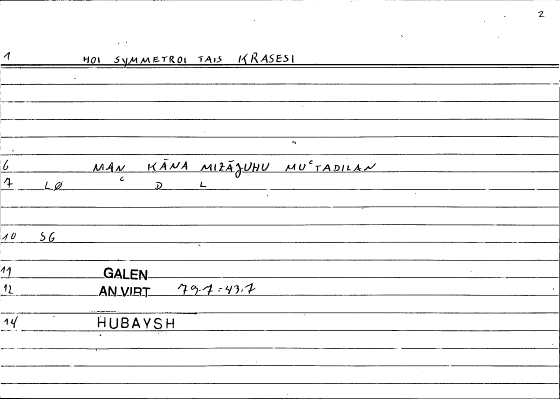 2
1 HOI SYMMETROI TAIS KRASESI
6 MAN KĀNA MIZĀJUHU MUʿTADILAN
7 LØ ʿ D L
10 SG
11 GALEN
12 AN VIRT 79.7 = 43.7
14 HUBAYSH